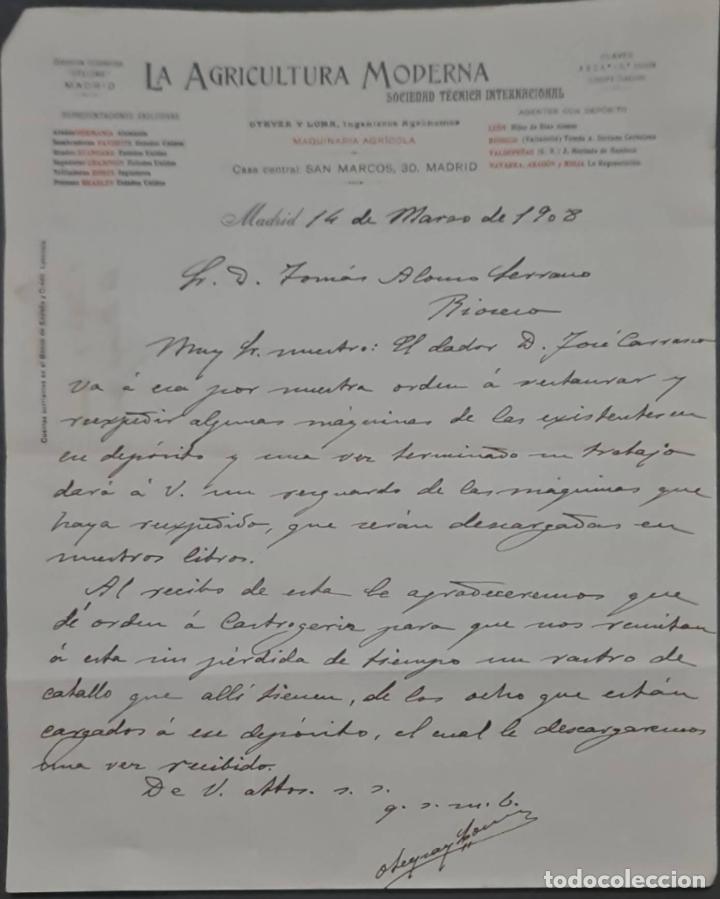 MADRID
LA AGRICULTURA MODERNA
SOCIEDAD TÉCNICA INTERNACIONAL
CLAVES
REPRESENTACIONES EXCLUSIVAS
Estados Unidos
Estados Unidos
Estados Unidos
Estados Unidos
OTEYZA Y LOMA, Ingenieros Agrónomos
MAQUINARIA AGRÍCOLA
Casa central: SAN MARCOS, 30. MADRID
AGENTES CON DEPÓSITO
LEÓN Hijos de Blas Alonso
RIOSECO (Valladolid) Tomás A. Serrano Carbajosa
NAVARRA, ARAGÓN y RIOJA La Representación
Cuentas corrientes en el Banco de España y Crédit Lyonnais
Madrid 14 de Marzo de 1908
Sr. D. Tomás Alonso Serrano
Rioseco
Muy Sr. nuestro: El dador D. José Carrasco
va á esa por nuestra orden á restaurar y
reexpedir algunas máquinas de las existentes en
ese depósito y una vez terminado su trabajo
dará á V. un resguardo de las máquinas que
haya reexpedido, que serán descargadas en
nuestros libros.
Al recibo de esta le agradeceremos que
dé orden á Castrogeriz para que nos remitan
á esta sin pérdida de tiempo un rastro de
caballo que allí tienen, de los ocho que están
cargados á ese depósito, el cual le descargaremos
una vez recibido.
De V. attos. s. s.
q. s. m. b.
Oteyza y Loma
todocoleccion